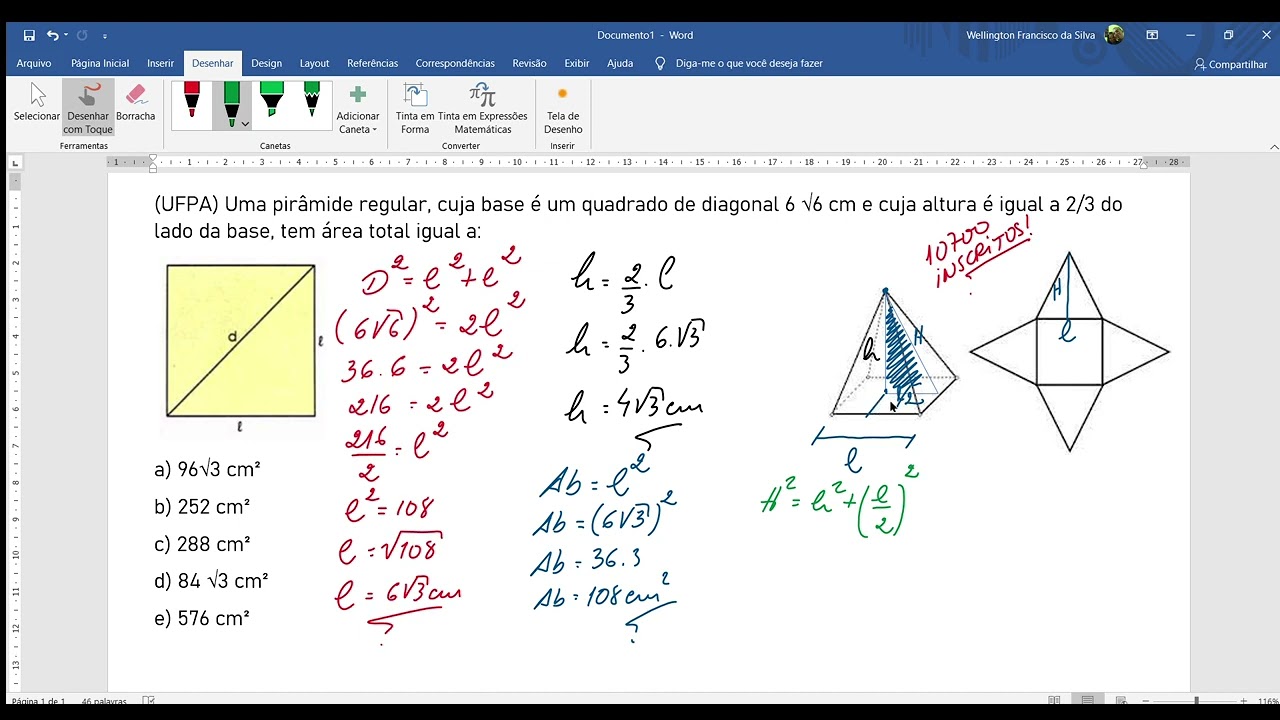 Documento1 - Word
Wellington Francisco da Silva
Arquivo Página Inicial Inserir Desenhar Design Layout Referências Correspondências Revisão Exibir Ajuda Diga-me o que você deseja fazer
Compartilhar
Selecionar
Desenhar com Toque
Borracha
Adicionar Caneta
Tinta em Forma
Tinta em Expressões Matemáticas
Tela de Desenho
Ferramentas Canetas Converter Inserir
1 1 2 3 4 5 6 7 8 9 10 11 12 13 14 15 16 17 18 19 20 21 22 23 24 25 26 27 28
(UFPA) Uma pirâmide regular, cuja base é um quadrado de diagonal 6 √6 cm e cuja altura é igual a 2/3 do
lado da base, tem área total igual a:
d
ℓ
ℓ
a) 96√3 cm²
b) 252 cm²
c) 288 cm²
d) 84 √3 cm²
e) 576 cm²
D² = l² + l²
(6√6)² = 2l²
36.6 = 2l²
216 = 2l²
216/2 = l²
l² = 108
l = √108
l = 6√3 cm
h = 2/3 . l
h = 2/3 . 6.√3
h = 4√3 cm
Ab = l²
Ab = (6√3)²
Ab = 36.3
Ab = 108 cm²
10700
INSCRITOS!
h
H
l
H
l
H² = h² + (l/2)²
Página 1 de 1 46 palavras
116%